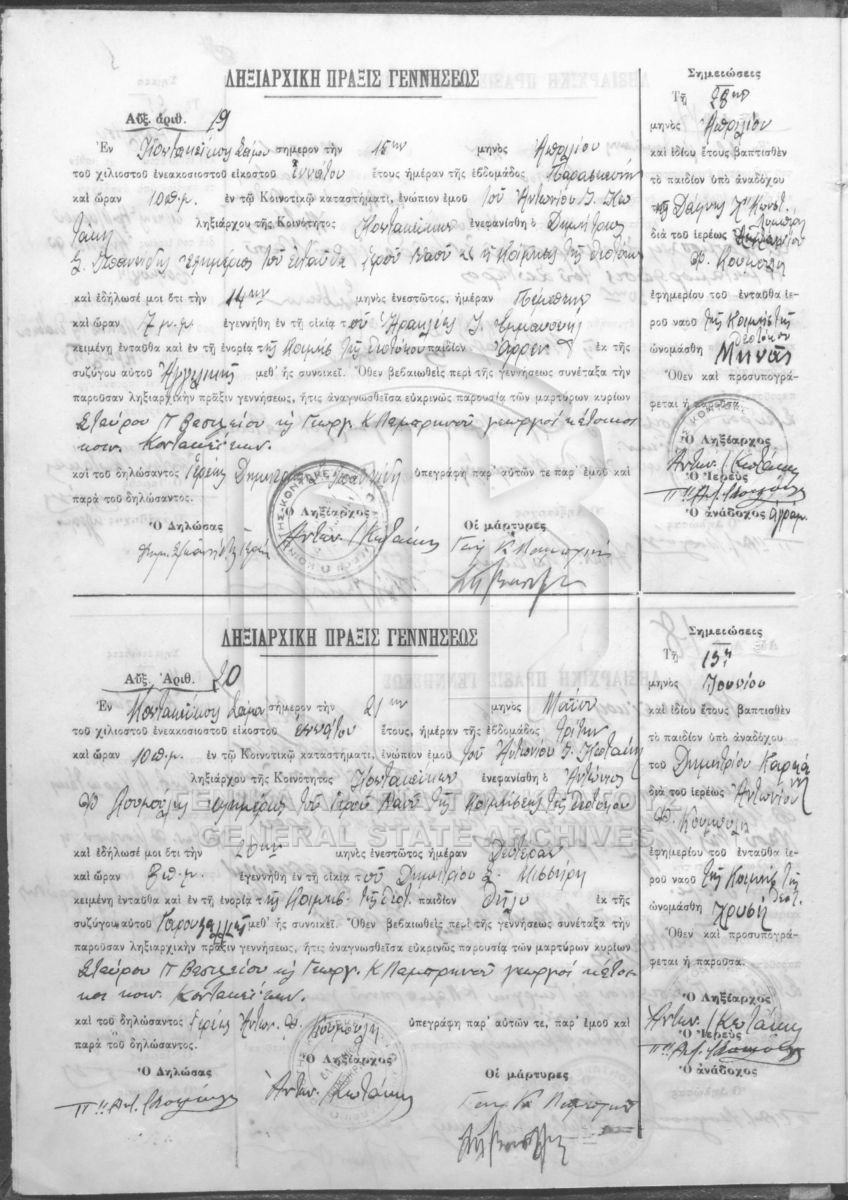 ΛΗΞΙΑΡΧΙΚΗ ΠΡΑΞΙΣ ΓΕΝΝΗΣΕΩΣ
Αὔξ. ἀριθ. 19
Ἐν Κοντακέϊκοις Σάμου σήμερον τὴν 15ην μηνὸς Ἀπριλίου
τοῦ χιλιοστοῦ ἐνεακοσιοστοῦ εἰκοστοῦ ἐννάτου ἔτους ἡμέραν τῆς ἑβδομάδος Παρασκευὴν
καὶ ὥραν 10 π.μ. ἐν τῷ Κοινοτικῷ καταστήματι, ἐνώπιον ἐμοῦ τοῦ Ἀντωνίου Ι. Κω
τάκη ληξιάρχου τῆς Κοινότητος Κοντακέϊκων ἐνεφανίσθη ὁ Δημήτριος
ἐφημέριος τοῦ ἐνταῦθα ἱεροῦ Ναοῦ τῆς Κοιμήσεως τῆς Θεοτόκου
καὶ ἐδήλωσέ μοι ὅτι τὴν 14ην μηνὸς ἐνεστῶτος, ἡμέραν Πέμπτην
καὶ ὥραν 7 μ.μ. ἐγεννήθη ἐν τῇ οἰκίᾳ τοῦ Ἡρακλέους Ι.
κειμένῃ ἐνταῦθα καὶ ἐν τῇ ἐνορίᾳ τῆς Κοιμήσ. τῆς Θεοτόκου παιδίον ἄρρεν ἐκ τῆς
συζύγου αὐτοῦ Ἀγγελικῆς μεθ' ἧς συνοικεῖ. Ὅθεν βεβαιωθεὶς περὶ τῆς γεννήσεως συνέταξα τὴν
παροῦσαν ληξιαρχικὴν πρᾶξιν γεννήσεως, ἥτις ἀναγνωσθεῖσα εὐκρινῶς παρουσίᾳ τῶν μαρτύρων κυρίων
Σταύρου Π Βασιλείου κ Γεωργ. Κ Λαμπρινοῦ γεωργοὶ κάτοικοι
κοιν. Κοντακέϊκων.
καὶ τοῦ δηλώσαντος Ἱερέως Δημητρίου ὑπεγράφη παρ' αὐτῶν τε παρ' ἐμοῦ καὶ
παρὰ τοῦ δηλώσαντος.
Ὁ Δηλώσας
Ὁ Ληξίαρχος
Οἱ μάρτυρες
Ἀντων. Ι Κωτάκης
Γεωρ Κ Λαμπρινὸς
Σημειώσεις
Τῇ 28ην
μηνὸς Ἀπριλίου
καὶ ἰδίου ἔτους βαπτισθὲν
τὸ παιδίον ὑπὸ ἀναδόχου
διὰ τοῦ ἱερέως Ἀντωνίου
ἐφημερίου τοῦ ἐνταῦθα ἱε-
ροῦ ναοῦ τῆς Κοιμήσ. τῆς
Θεοτόκου
ὠνομάσθη Μηνᾶς
Ὅθεν καὶ προσυπογρά-
φεται ἡ παροῦσα.
Ὁ Ληξίαρχος
Ἀντων. Ι Κωτάκης
Ὁ Ἱερεὺς
Ὁ ἀνάδοχος ἀγράμ.
ΛΗΞΙΑΡΧΙΚΗ ΠΡΑΞΙΣ ΓΕΝΝΗΣΕΩΣ
Αὔξ. Ἀριθ. 20
Ἐν Κοντακέϊκοις Σάμου σήμερον τὴν 21ην μηνὸς Μαΐου
τοῦ χιλιοστοῦ ἐνεακοσιοστοῦ εἰκοστοῦ ἐννάτου ἔτους, ἡμέραν τῆς ἑβδομάδος Τρίτην
καὶ ὥραν 10 π.μ. ἐν τῷ Κοινοτικῷ καταστήματι, ἐνώπιον ἐμοῦ τοῦ Ἀντωνίου Ι. Κωτάκη
ληξιάρχου τῆς Κοινότητος Κοντακέϊκων ἐνεφανίσθη ὁ Ἀντώνιος
ἐφημέριος τοῦ ἱεροῦ Ναοῦ τῆς Κοιμήσεως τῆς Θεοτόκου
καὶ ἐδήλωσέ μοι ὅτι τὴν 20ην μηνὸς ἐνεστῶτος ἡμέραν Δευτέραν
καὶ ὥραν π.μ. ἐγεννήθη ἐν τῇ οἰκίᾳ τοῦ Δημητρίου
κειμένῃ ἐνταῦθα καὶ ἐν τῇ ἐνορίᾳ τῆς Κοιμήσ. τῆς Θεοτ. παιδίον θῆλυ ἐκ τῆς
συζύγου αὐτοῦ μεθ' ἧς συνοικεῖ. Ὅθεν βεβαιωθεὶς περὶ τῆς γεννήσεως συνέταξα τὴν
παροῦσαν ληξιαρχικὴν πρᾶξιν γεννήσεως, ἥτις ἀναγνωσθεῖσα εὐκρινῶς παρουσίᾳ τῶν μαρτύρων κυρίων
Σταύρου Π Βασιλείου κ Γεωργ. Κ Λαμπρινοῦ γεωργοὶ κάτοι-
κοι κοιν. Κοντακέϊκων.
καὶ τοῦ δηλώσαντος Ἱερέως Ἀντων. ὑπεγράφη παρ' αὐτῶν τε, παρ' ἐμοῦ καὶ
παρὰ τοῦ δηλώσαντος.
Ὁ Δηλώσας
Ὁ Ληξίαρχος
Οἱ μάρτυρες
Ἀντων. Ι Κωτάκης
Γεωρ Κ Λαμπρινὸς
Σημειώσεις
Τῇ 13ῃ
μηνὸς Ἰουνίου
καὶ ἰδίου ἔτους βαπτισθὲν
τὸ παιδίον ὑπὸ ἀναδόχου
τοῦ Δημητρίου
διὰ τοῦ ἱερέως Ἀντωνίου
ἐφημερίου τοῦ ἐνταῦθα ἱε-
ροῦ ναοῦ τῆς Κοιμήσ. τῆς
Θεοτ.
ὠνομάσθη Χρυσῆ
Ὅθεν καὶ προσυπογρά-
φεται ἡ παροῦσα.
Ὁ Ληξίαρχος
Ἀντων. Ι Κωτάκης
Ὁ Ἱερεὺς
Ὁ ἀνάδοχος
ΓΕΝΙΚΑ ΑΡΧΕΙΑ ΤΟΥ ΚΡΑΤΟΥΣ
GENERAL STATE ARCHIVES